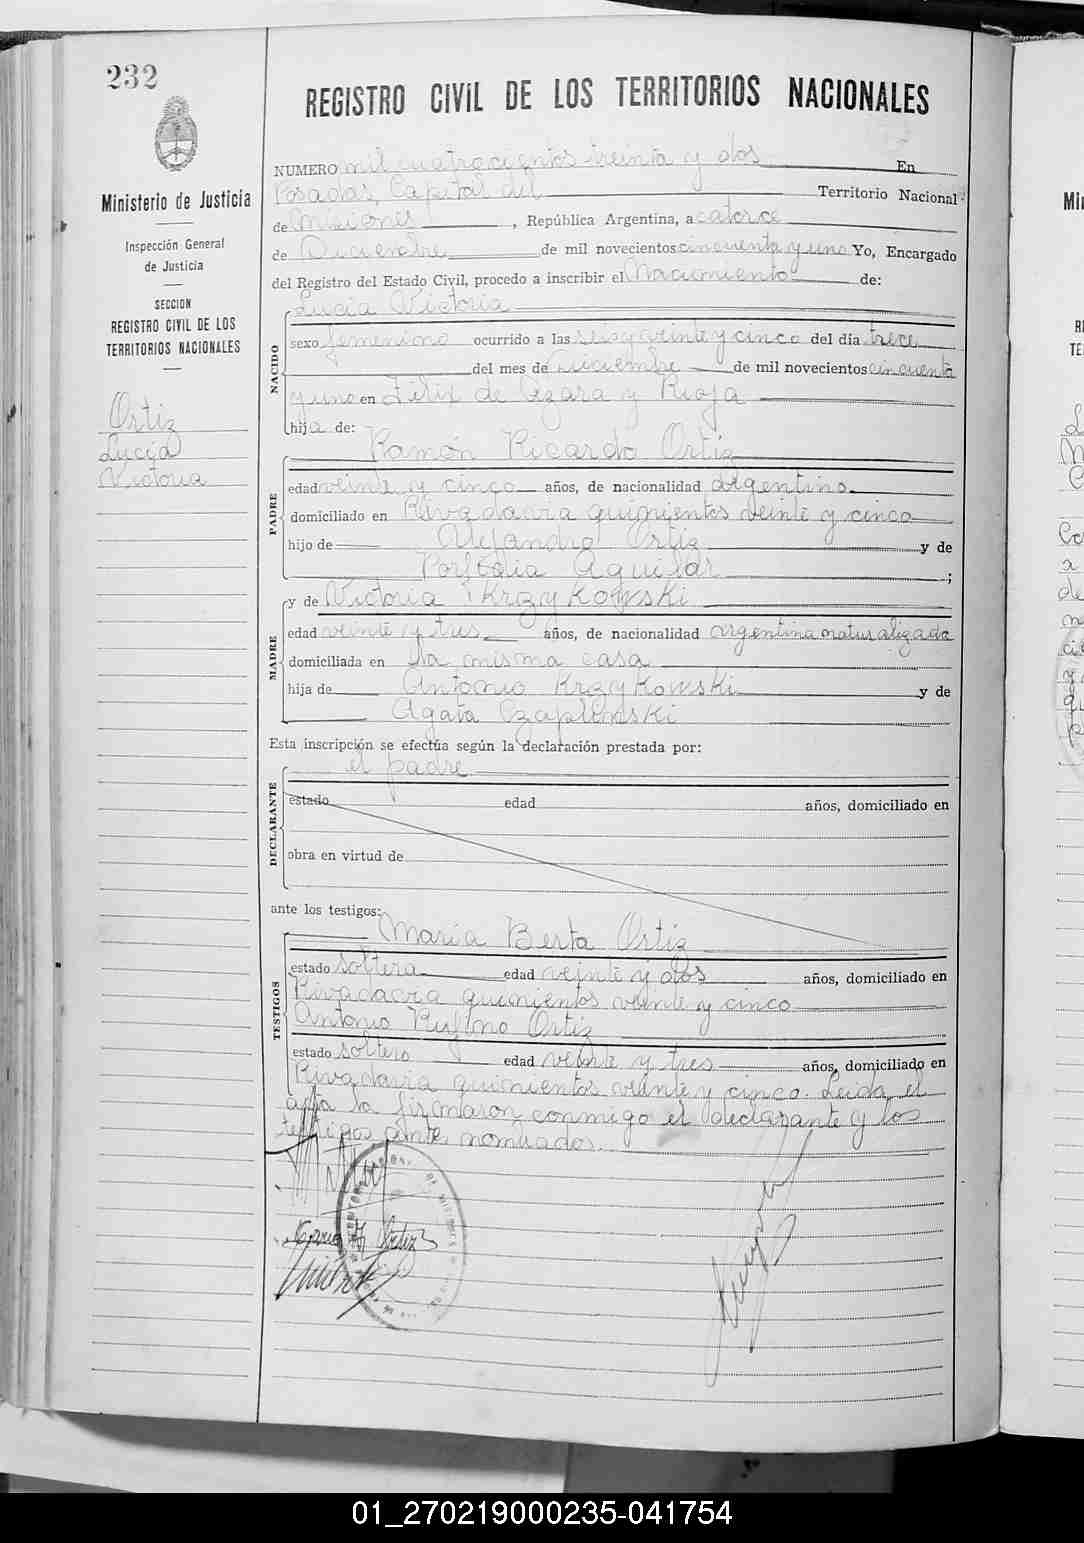 232
REGISTRO CIVIL DE LOS TERRITORIOS NACIONALES
Ministerio de Justicia
Inspección General
de Justicia
SECCION
REGISTRO CIVIL DE LOS
TERRITORIOS NACIONALES
Ortiz
Lucía
Victoria
NUMERO mil cuatrocientos treinta y dos En
Posadas, Capital del Territorio Nacional
de Misiones, República Argentina, a catorce
de Diciembre de mil novecientos cincuenta y uno Yo, Encargado
del Registro del Estado Civil, procedo a inscribir el Nacimiento de:
Lucía Victoria
NACIDO
sexo femenino ocurrido a las seis y veinte y cinco del día trece
del mes de Diciembre de mil novecientos cincuenta
y uno en Félix de Azara y Rioja
hija de:
Ramón Ricardo Ortiz
PADRE
edad veinte y cinco años, de nacionalidad argentino
domiciliado en Rivadavia quinientos veinte y cinco
hijo de Alejandro Ortiz y de
Porfidia Aguilar;
y de Victoria Krzykowski
MADRE
edad veinte y tres años, de nacionalidad argentina naturalizada
domiciliada en la misma casa
hija de Antonio Krzykowski y de
Agata Czaplinski
Esta inscripción se efectúa según la declaración prestada por:
el padre
DECLARANTE
estado edad años, domiciliado en
obra en virtud de
ante los testigos:
María Berta Ortiz
TESTIGOS
estado soltera edad veinte y dos años, domiciliado en
Rivadavia quinientos veinte y cinco
Antonio Rufino Ortiz
estado soltero edad veinte y tres años, domiciliado en
Rivadavia quinientos veinte y cinco. Leída el
acta la firmaron conmigo el declarante y los
testigos antes nombrados.
01_270219000235-041754